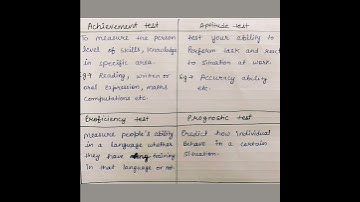 Achievement test
To measure the person
level of skills, knowledge
in specific area.
Eg → Reading, written or
oral expression, maths
Computations etc.
Aptitude test
test your ability to
Perform task and react
to situation at work.
Eg → Accuracy ability
etc.
Proficiency test
Measure people's ability
in a language whether
they have training
In that language or not
Prognostic test
Predict how individual
Behave in a certain
Situation.